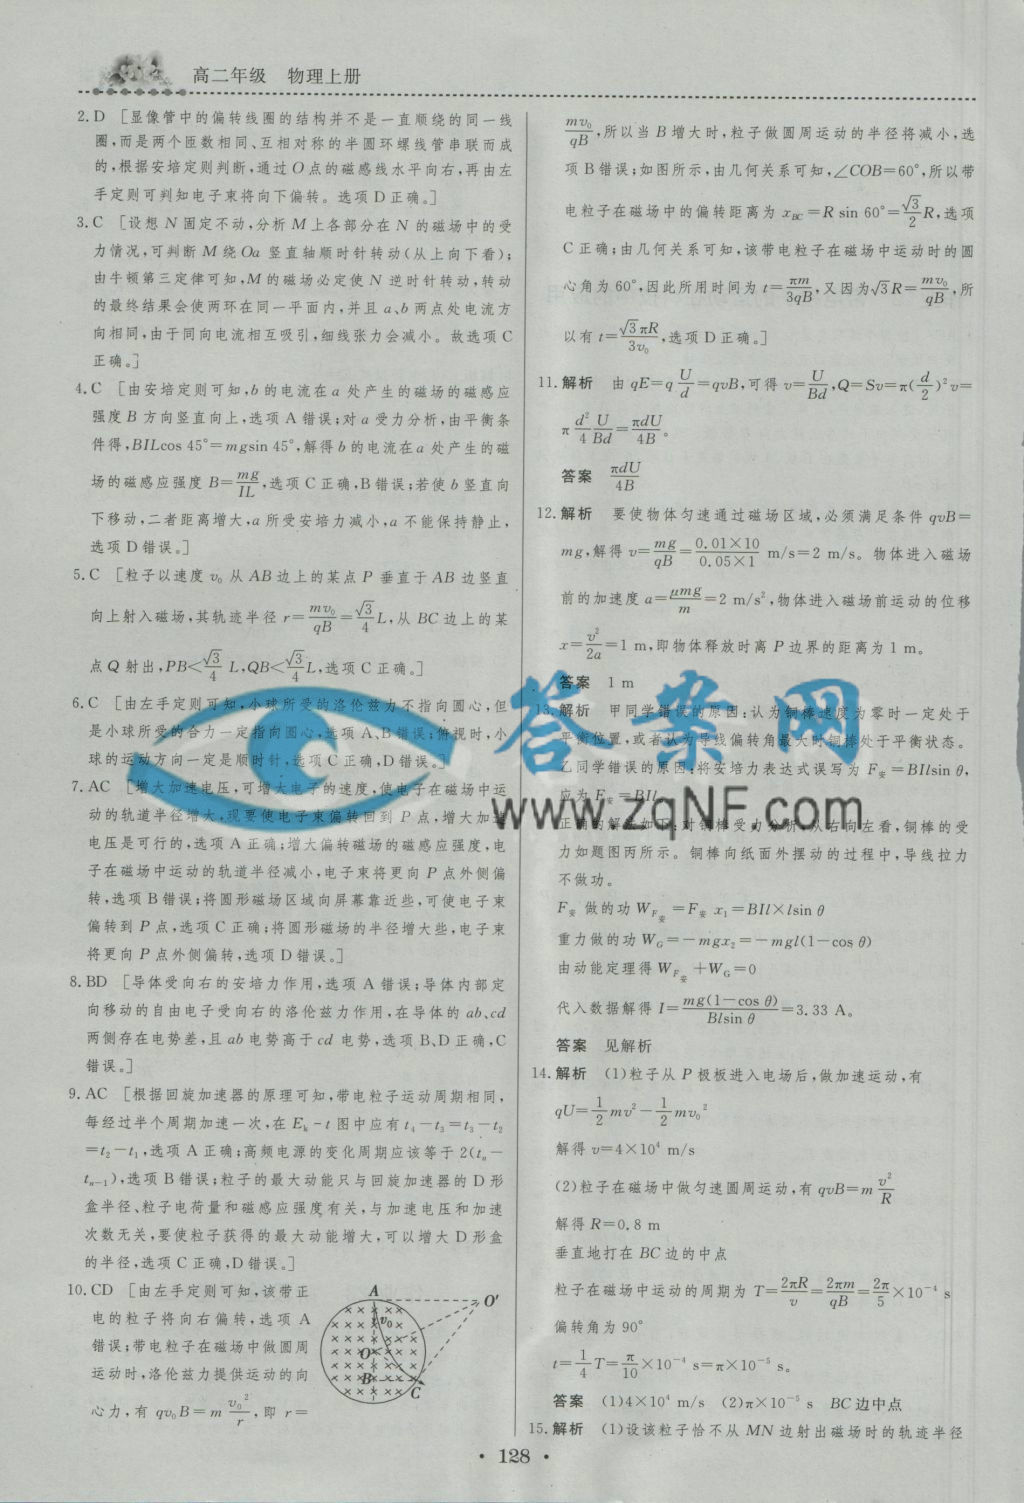 高二年级 物理上册
2.D [显像管中的偏转线圈的结构并不是一直顺绕的同一线
圈,而是两个匝数相同、互相对称的半圆环螺线管串联而成
的,根据安培定则判断,通过O点的磁感线水平向右,再由左
手定则可判知电子束将向下偏转。选项D正确。]
3.C [设想N固定不动,分析M上各部分在N的磁场中的受
力情况,可判断M绕Oa竖直轴顺时针转动(从上向下看);
由牛顿第三定律可知,M的磁场必定使N逆时针转动,转动
的最终结果会使两环在同一平面内,并且a、b两点处电流方
向相同,由于同向电流相互吸引,细线张力会减小。故选项C
正确。]
4.C [由安培定则可知,b的电流在a处产生的磁场的磁感应
强度B方向竖直向上,选项A错误;对a受力分析,由平衡条
件得,BILcos 45°=mgsin 45°,解得b的电流在a处产生的磁
场的磁感应强度B=mg/IL,选项C正确,B错误;若使b竖直向
下移动,二者距离增大,a所受安培力减小,a不能保持静止,
选项D错误。]
5.C [粒子以速度v₀从AB边上的某点P垂直于AB边竖直
向上射入磁场,其轨迹半径r=mv₀/qB=√3/4 L,从BC边上的某
点Q射出,PB<√3/4 L,QB<√3/4 L,选项C正确。]
6.C [由左手定则可知,小球所受的洛伦兹力不指向圆心,但
是小球所受的合力一定指向圆心,选项A、B错误;俯视时,小
球的运动方向一定是顺时针,选项C正确,D错误。]
7.AC [增大加速电压,可增大电子的速度,使电子在磁场中运
动的轨道半径增大,现要使电子束偏转回到P点,增大加速
电压是可行的,选项A正确;增大偏转磁场的磁感应强度,电
子在磁场中运动的轨道半径减小,电子束将更向P点外侧偏
转,选项B错误;将圆形磁场区域向屏幕靠近些,可使电子束
偏转到P点,选项C正确;将圆形磁场的半径增大些,电子束
将更向P点外侧偏转,选项D错误。]
8.BD [导体受向右的安培力作用,选项A错误;导体内部定
向移动的自由电子受向右的洛伦兹力作用,在导体的ab、cd
两侧存在电势差,且ab电势高于cd电势,选项B、D正确,C
错误。]
9.AC [根据回旋加速器的原理可知,带电粒子运动周期相同,
每经过半个周期加速一次,在Eₖ-t图中应有t₄-t₃=t₃-t₂
=t₂-t₁,选项A正确;高频电源的变化周期应该等于2(tₙ-
tₙ₋₁),选项B错误;粒子的最大动能只与回旋加速器的D形
盒半径、粒子电荷量和磁感应强度有关,与加速电压和加速
次数无关,要使粒子获得的最大动能增大,可以增大D形盒
的半径,选项C正确,D错误。]
10.CD [由左手定则可知,该带正
电的粒子将向右偏转,选项A
错误;带电粒子在磁场中做圆周
运动时,洛伦兹力提供运动的向
心力,有qv₀B=m v₀²/r,即r=
A
O′
v₀
O
B
C
mv₀/qB,所以当B增大时,粒子做圆周运动的半径将减小,选
项B错误;如图所示,由几何关系可知,∠COB=60°,所以带
电粒子在磁场中的偏转距离为x_BC=R sin 60°=√3/2 R,选项
C正确;由几何关系可知,该带电粒子在磁场中运动时的圆
心角为60°,因此所用时间为t=πm/3qB,又因为√3R=mv₀/qB,所
以有t=√3πR/3v₀,选项D正确。]
11.解析 由qE=q U/d=qvB,可得v=U/Bd,Q=Sv=π(d/2)²v=
π d²/4 U/Bd=πdU/4B。
答案 πdU/4B
12.解析 要使物体匀速通过磁场区域,必须满足条件qvB=
mg,解得v=mg/qB=0.01×10/0.05×1 m/s=2 m/s。物体进入磁场
前的加速度a=μmg/m=2 m/s²,物体进入磁场前运动的位移
x=v²/2a=1 m,即物体释放时离P边界的距离为1 m。
答案 1 m
13.解析 甲同学错误的原因:认为铜棒速度为零时一定处于
平衡位置,或者认为导线偏转角最大时铜棒处于平衡状态。
乙同学错误的原因:将安培力表达式误写为F安=BIlsin θ,
应为F安=BIl。
正确的解法如下:对铜棒受力分析,从右向左看,铜棒的受
力如题图丙所示。铜棒向纸面外摆动的过程中,导线拉力
不做功。
F安做的功W_F安=F安x₁=BIl×lsin θ
重力做的功W_G=-mgx₂=-mgl(1-cos θ)
由动能定理得W_F安+W_G=0
代入数据解得I=mg(1-cos θ)/Blsin θ=3.33 A。
答案 见解析
14.解析 (1)粒子从P极板进入电场后,做加速运动,有
qU=1/2 mv²-1/2 mv₀²
解得v=4×10⁴ m/s
(2)粒子在磁场中做匀速圆周运动,有qvB=m v²/R
解得R=0.8 m
垂直地打在BC边的中点
粒子在磁场中运动的周期为T=2πR/v=2πm/qB=2π/5×10⁻⁴ s
偏转角为90°
t=1/4 T=π/10×10⁻⁴ s=π×10⁻⁵ s。
答案 (1)4×10⁴ m/s (2)π×10⁻⁵ s BC边中点
15.解析 (1)设该粒子恰不从MN边射出磁场时的轨迹半径
·128·
答案网
www.zqNF.com